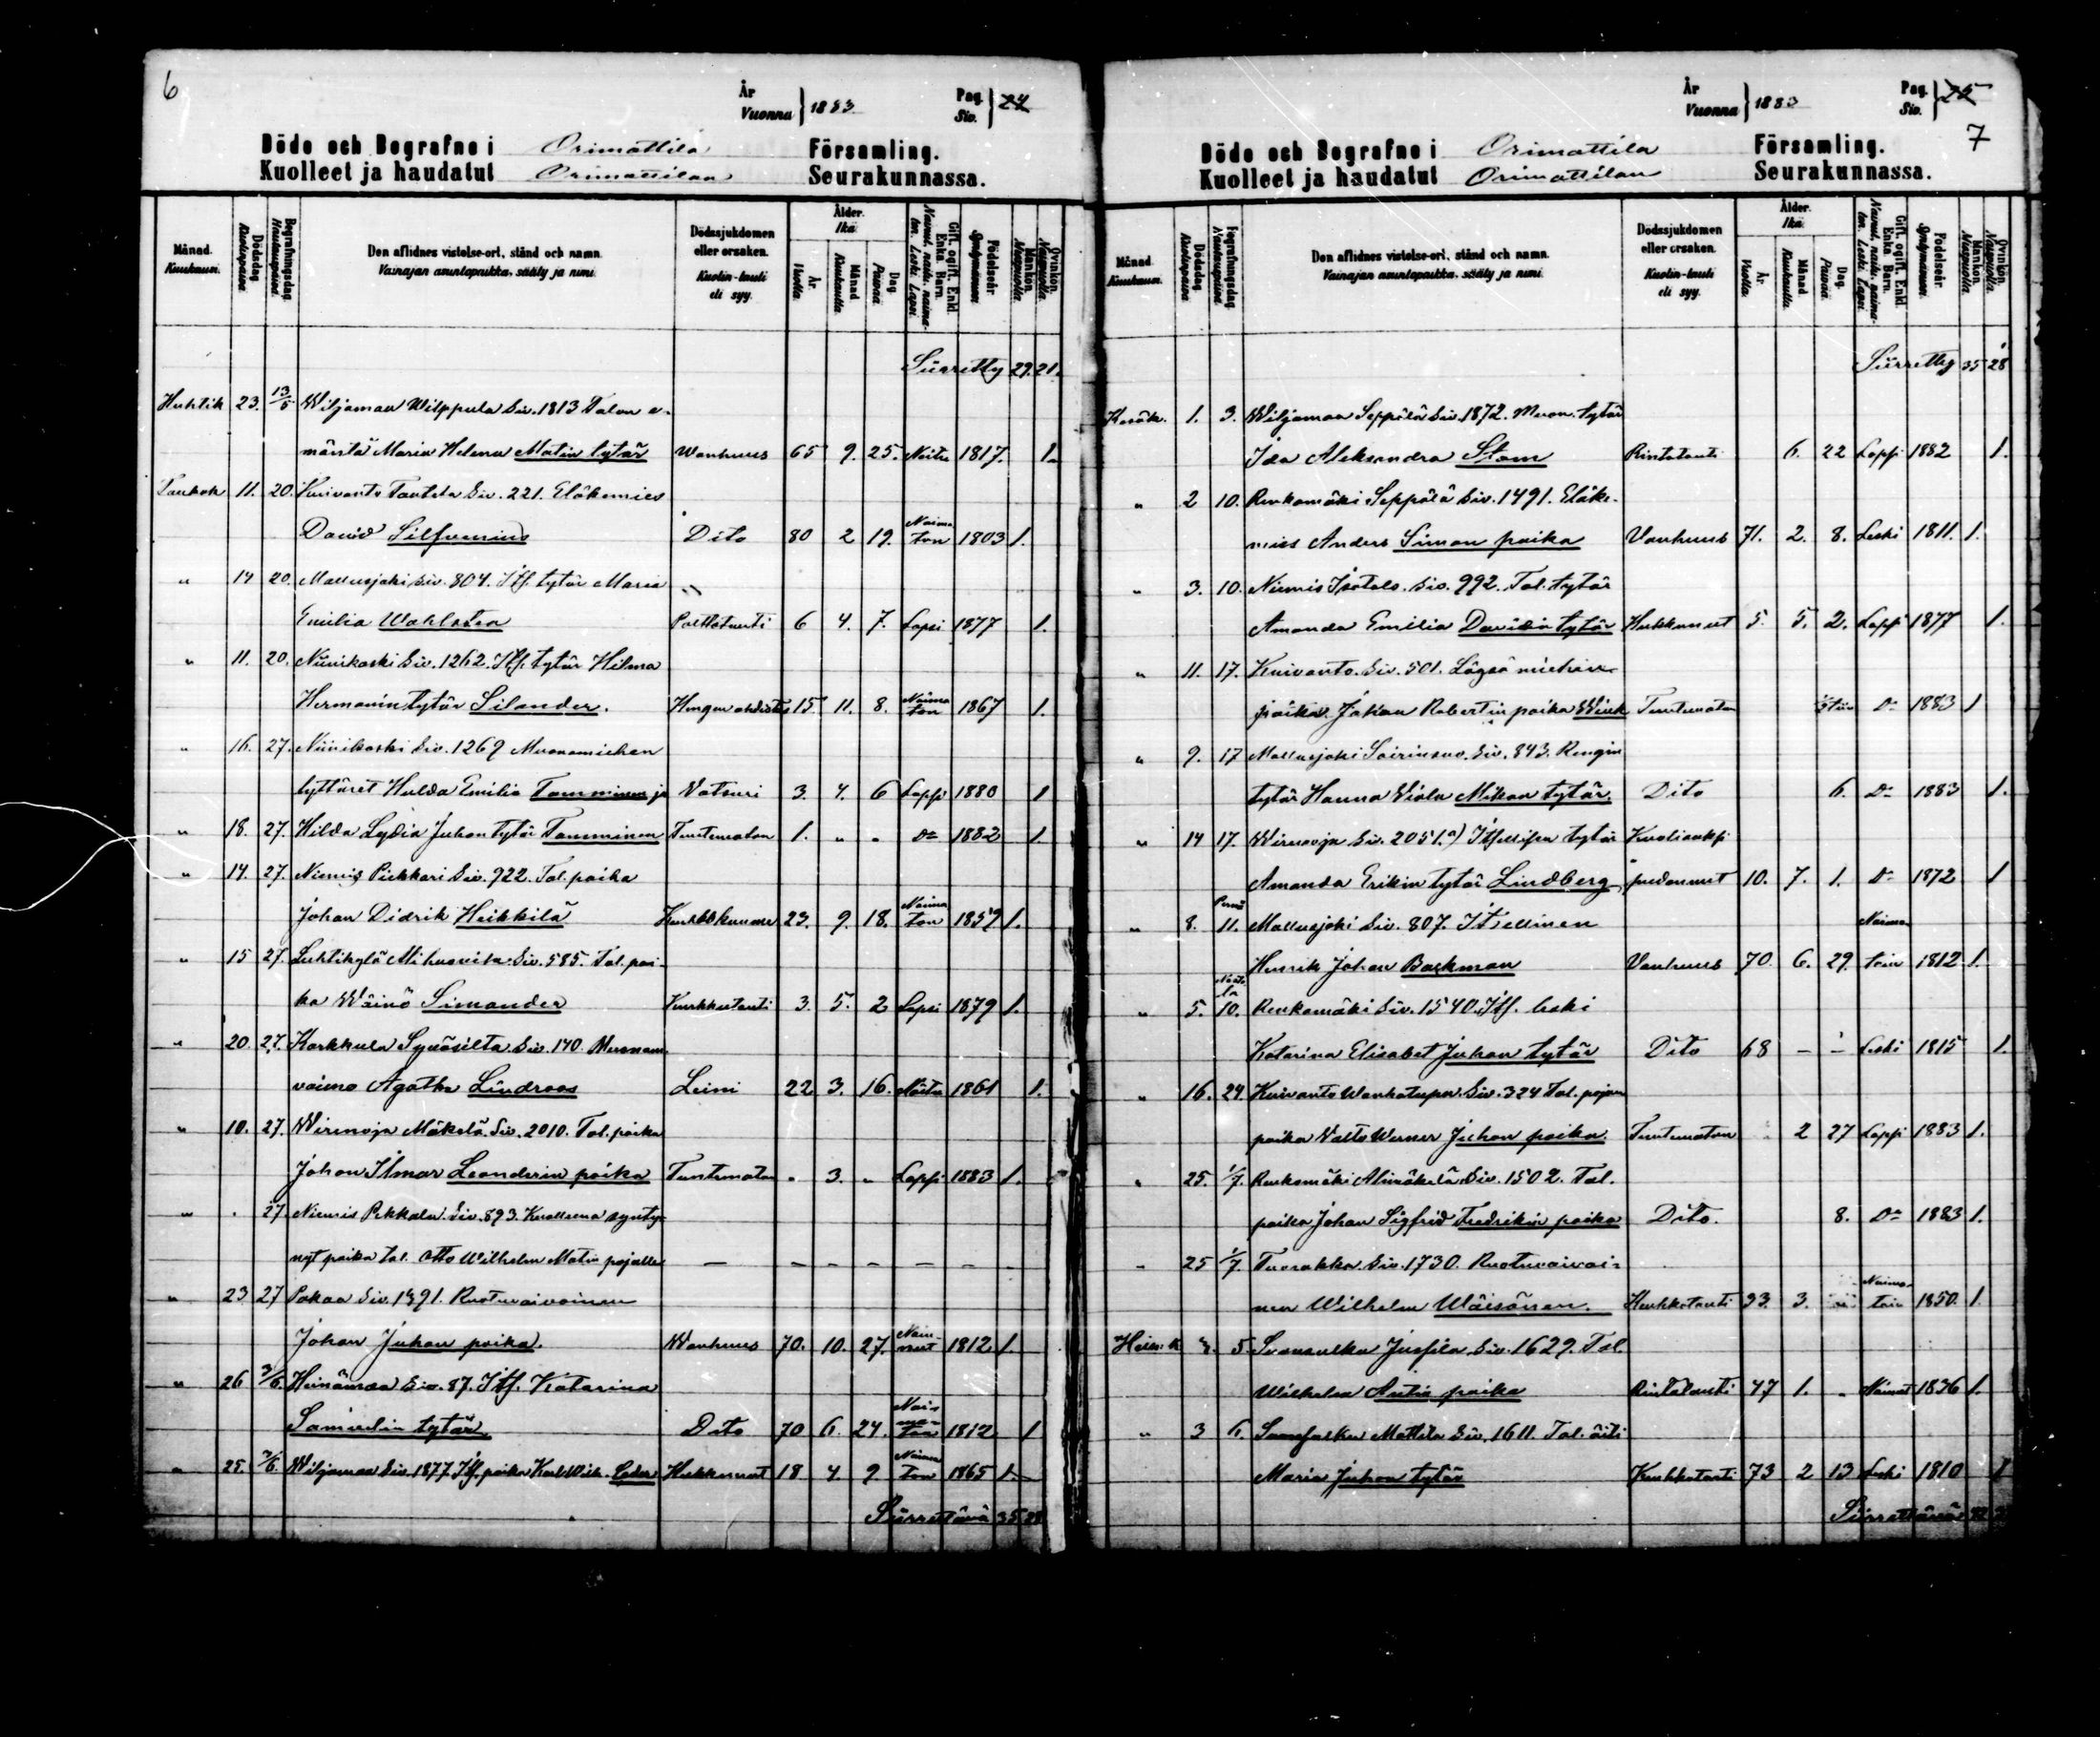 6
År
Vuonna } 1883.
Pag.
Siv. } 24
Döde och Begrafne i Orimattila Församling.
Kuolleet ja haudatut Orimattilan Seurakunnassa.
Månad. Kuukausi.
Dödsdag. Kuolinpäivä.
Begrafningsdag. Hautauspäivä.
Den aflidnes vistelse-ort, stånd och namn.
Vainajan asuntopaikka, sääty ja nimi.
Dödssjukdomen eller orsaken.
Kuolin-tauti eli syy.
Ålder. Ikä.
År. Vuotta.
Månad. Kuukautta.
Dag. Päivää.
Gift, ogift, Enkl. Enka, Barn.
Födelseår. Syntymävuosi.
Mankön. Miespuolia.
Qvinkön. Naispuolia.
Siirretty 29. 21.
Huhtik 23. 13/5 Wiljamaa Wilppula Siv. 1813 Talon e-
mäntä Maria Helena Matin tytär Wanhuus 65 9. 25. Naitu 1817. 1.
Toukok 11. 20. Kuivanto Tautila Siv. 221. Eläkemies
David Silfvenius Dito 80 2 19. Naima ton 1803 1.
" 14 20. Mallusjoki Siv. 804. Itf. tytär Maria
Emilia Wahlsten Polttotauti 6 4. 7. Lapsi 1877 1.
" 11. 20. Niinikoski Siv. 1262. Itf. tytär Hilma
Hermanin tytär Silander. Hengen ahdistus 15 11. 8. Naima ton 1867 1.
" 16. 27. Niinikoski Siv. 1269 Muonamiehen
tyttäret Hulda Emilia Tamminen ja Vatsuri 3. 4. 6 Lapsi 1880 1
" 18. 27. Hilda Lydia Juhan tytär Tamminen Tuntematon 1. " " Do 1882 1.
" 14. 27. Niemis Piekkari Siv. 922. Tal. poika
Johan Didrik Heikkilä 23. 9. 18. Naima ton 1859 1.
" 15 27. Luhtikylä Siv. 585. Tal. poi-
ka Wäinö Simander Kurkkutauti 3. 5. 2 Lapsi 1879 1.
" 20. 27. Karkkula Syväsilta Siv. 140. Muonam.
vaimo Agatha Lindroos Leini 22 3. 16. Naitu 1861 1.
" 10. 27. Wirenoja Mäkelä Siv. 2010. Tal. poika
Johan Ilmar Leanderin poika Tuntematon " 3. " Lapsi 1883 1.
" . 27. Niemis Pekkala Siv. 893. Kuolleena synty-
nyt poika tal. Otto Wilhelm Matin pojalle — — — — — — —
" 23. 27 Pakaa Siv. 1391. Ruotuvaivainen
Johan Juhan poika. Wanhuus 70. 10. 27. Nainut 1812 1.
" 26 3/6. Heinämaa Siv. 87. Itf. Katarina
Samuelin tytär. Dito 70 6. 24. Naima ton 1812 1
" 25. 3/6. Wiljamaa Siv. 1877 Itf. poika Karl Wilh. Ceder Hukkunut 18 4 9 Naima ton 1865 1.
Siirrettävä 35 28
År
Vuonna } 1883
Pag.
Siv. } 25
7
Döde och Begrafne i Orimattila Församling.
Kuolleet ja haudatut Orimattilan Seurakunnassa.
Månad. Kuukausi.
Dödsdag. Kuolinpäivä.
Begrafningsdag. Hautauspäivä.
Den aflidnes vistelse-ort, stånd och namn.
Vainajan asuntopaikka, sääty ja nimi.
Dödssjukdomen eller orsaken.
Kuolin-tauti eli syy.
Ålder. Ikä.
År. Vuotta.
Månad. Kuukautta.
Dag. Päivää.
Gift, ogift, Enkl. Enka, Barn.
Födelseår. Syntymävuosi.
Mankön. Miespuolia.
Qvinkön. Naispuolia.
Siirretty 35 28
Kesäk. 1. 3. Wiljamaa Seppälä Siv. 1872. Muon. tytär
Ida Aleksandra Stam Rintatauti 6. 22 Lapsi 1882 1.
" 2 10. Renkomäki Seppälä Siv. 1491. Eläke-
mies Anders Simon poika Vanhuus 71. 2. 8. Leski 1811. 1.
" 3. 10. Niemis Isotalo. Siv. 992. Tal. tytär
Amanda Emilia Davidin tytär Hukkunut 5. 5. 2. Lapsi 1877 1.
" 11. 17. Kuivanto. Siv. 501.
poika Johan Robertin poika Wiik Tuntematon Do 1883 1
" 9. 17 Mallusjoki Sairinsuo. Siv. 843. Rengin
tytär Hanna Viola Mikon tytär. Dito 6. Do 1883 1.
" 14 17. Wirenoja Siv. 2051.a) Itsellisen tytär Kuoliaaksi
Amanda Erikin tytär Lindberg pudonnut 10. 7. 1. Do 1872 1
" 8. 11. Mallusjoki Siv. 807. Itsellinen
Henrik Johan Backman Vanhuus 70. 6. 29. Naima toin 1812 1.
" 5. 10. Renkomäki Siv. 1540. Itf. leski
Katarina Elisabet Juhan tytär Dito 68 — — Leski 1815 1.
" 16. 24. Kuivanto Wanhatupa. Siv. 324 Tal. pojan
poika Walto Werner Juhan poika. Tuntematon 2 27 Lapsi 1883 1.
" 25. 1/7. Renkomäki Alimäkelä Siv. 1502. Tal.
poika Johan Sigfrid Fredrikin poika Dito. 8. Do 1883 1.
" 25 1/7. Tuorakka Siv. 1730. Ruotuvaivai-
nen Wilhelm Wäisänen. Keuhkotauti 93. 3. Naima toin 1850. 1.
Heinäk 5. Jusfila Siv. 1629. Tal.
Wilhelm Antin poika Rintatauti 47 1. " Nainut 1836 1.
" 3 6. Mattila Siv. 1611. Tal. äiti
Maria Juhan tytär Keuhkotauti 73 2 13 Leski 1810 1
Siirrettävä